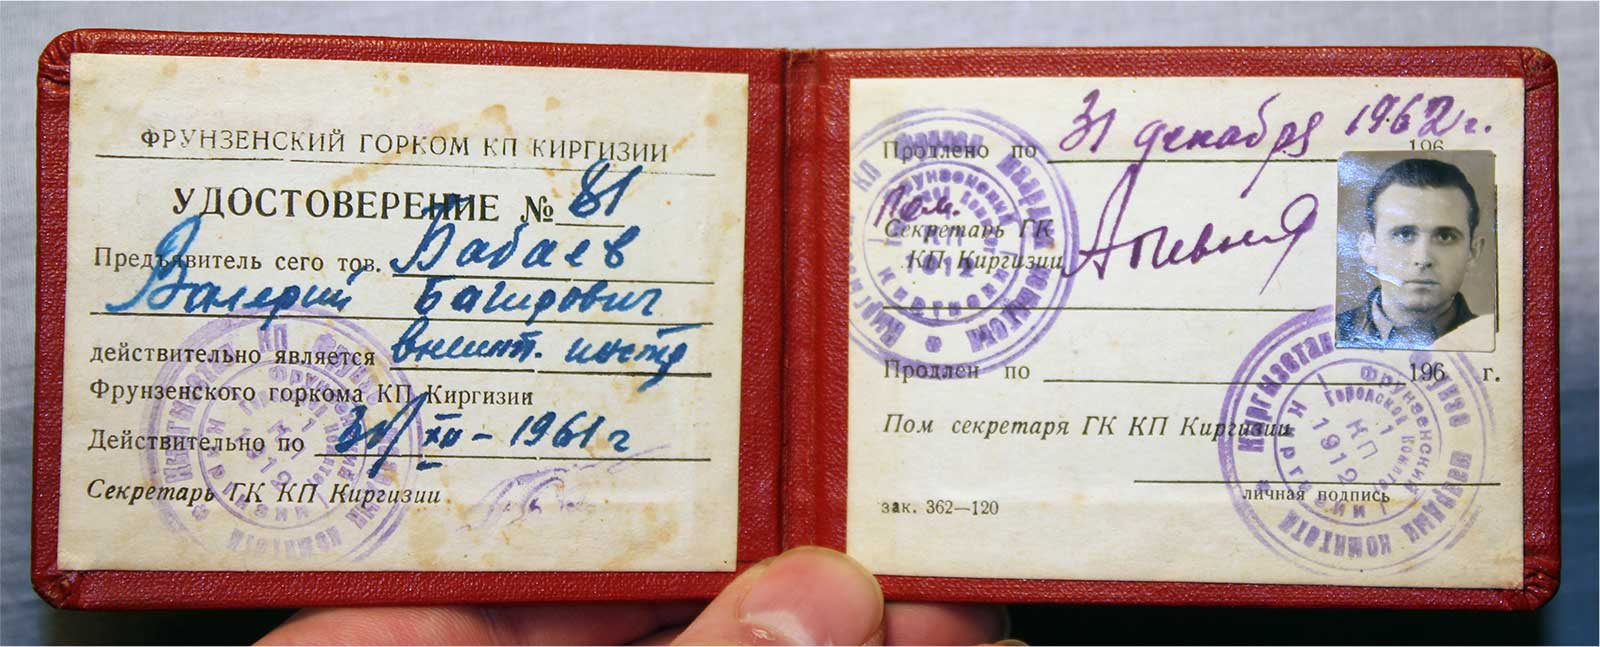 ФРУНЗЕНСКИЙ ГОРКОМ КП КИРГИЗИИ
УДОСТОВЕРЕНИЕ № 81
Предъявитель сего тов. Бабаев
Валерий Багирович
действительно является внешт. инстр
Фрунзенского горкома КП Киргизии
Действительно по 31/XII - 1961 г
Секретарь ГК КП Киргизии
Продлено по 31 декабря 1962 г.
196
Пом.
Секретарь ГК
КП Киргизии
Продлен по 196 г.
Пом секретаря ГК КП Киргизии
личная подпись
зак. 362—120